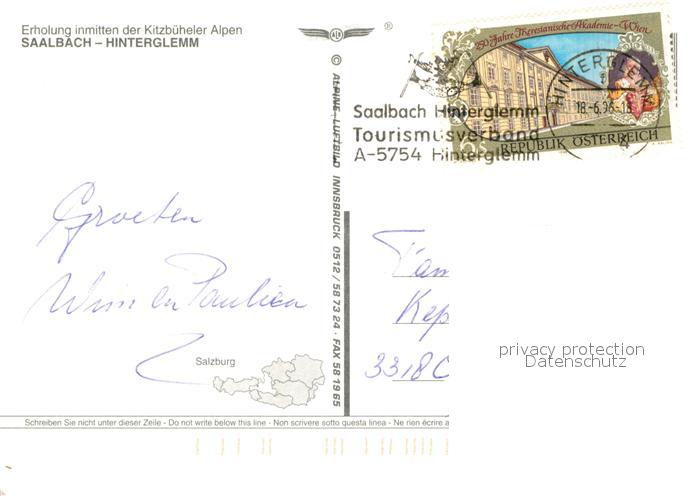 Erholung inmitten der Kitzbüheler Alpen
SAALBACH – HINTERGLEMM
®
© ALPINE LUFTBILD INNSBRUCK 0512 / 58 73 24 · FAX 58 19 65
250 Jahre Theresianische Akademie – Wien
REPUBLIK ÖSTERREICH
HINTERGLEMM
18.-6.96-18
Saalbach Hinterglemm
Tourismusverband
A-5754 Hinterglemm
Groeten
Wim en Paulien
Tam
Kep
3318C
privacy protection
Datenschutz
Salzburg
Schreiben Sie nicht unter dieser Zeile - Do not write below this line - Non scrivere sotto questa linea - Ne rien écrire a